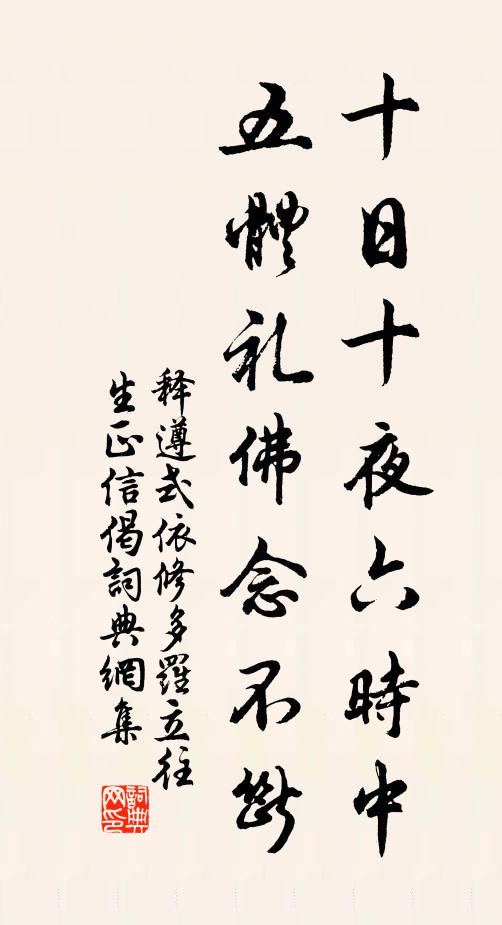 十日十夜六時中
五體礼佛念不斷
释遵式依修多羅立往
生正信偈詞典網集
詞典网印